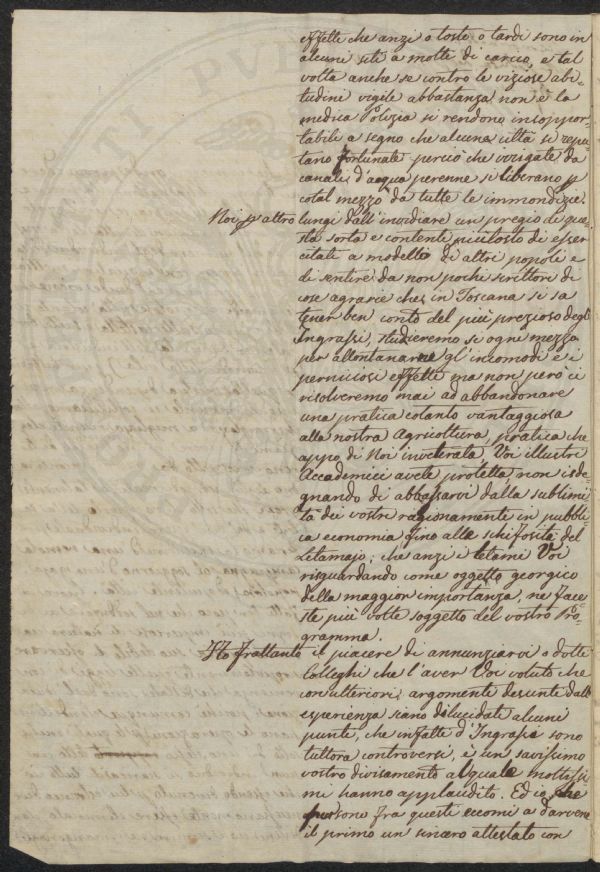 effetti che anzi o tosto o tardi sono in
alcuni siti a molti di carico, e tal
volta anche se contro le viziose abi-
tudini vigile abbastanza non è la
medica Polizia si rendono insoppor-
tabili a segno che alcune città si repu-
tano fortunate perciò che irrigate da
canali d'acqua perenne si liberano p
cotal mezzo da tutte le immondizie.
Noi p altro lungi dall'invidiare un pregio di que-
sta sorta e contenti piuttosto di esser
citati a modello di altri popoli e
di sentire da non pochi scrittori di
cose agrarie che in Toscana si sa
tener ben conto del più prezioso degli
Ingrassi, studieremo sì ogni mezzo
per allontanarne gl'incomodi e i
perniciosi effetti ma non però ci
risolveremo mai ad abbandonare
una pratica cotanto vantaggiosa
alla nostra Agricoltura, pratica che
appo di Noi inveterata, Voi illustri
Accademici avete protetta, non isde-
gnando di abbassarvi dalla sublimi
tà dei vostri ragionamenti in pubbli
ca economia fino alle schifosità del
Letamajo; che anzi i letami Voi
risguardando come oggetto georgico
della maggior importanza, ne face-
ste più volte soggetto del vostro Pro-
gramma.
Ho frattanto il piacere di annunziarvi o dotti
Colleghi che l'aver Voi voluto che
con ulteriori argomenti desunti dall'
esperienza siano dilucidati alcuni
punti, che in fatto d'Ingrassi sono
tuttora controversi, è un savissimo
vostro divisamento al quale moltissi
mi hanno applaudito. Ed io che
pur sono fra questi eccomi a darvene
il primo un sincero attestato con